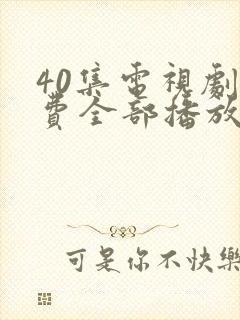 40集電視劇
費全部播放
可是你不快樂